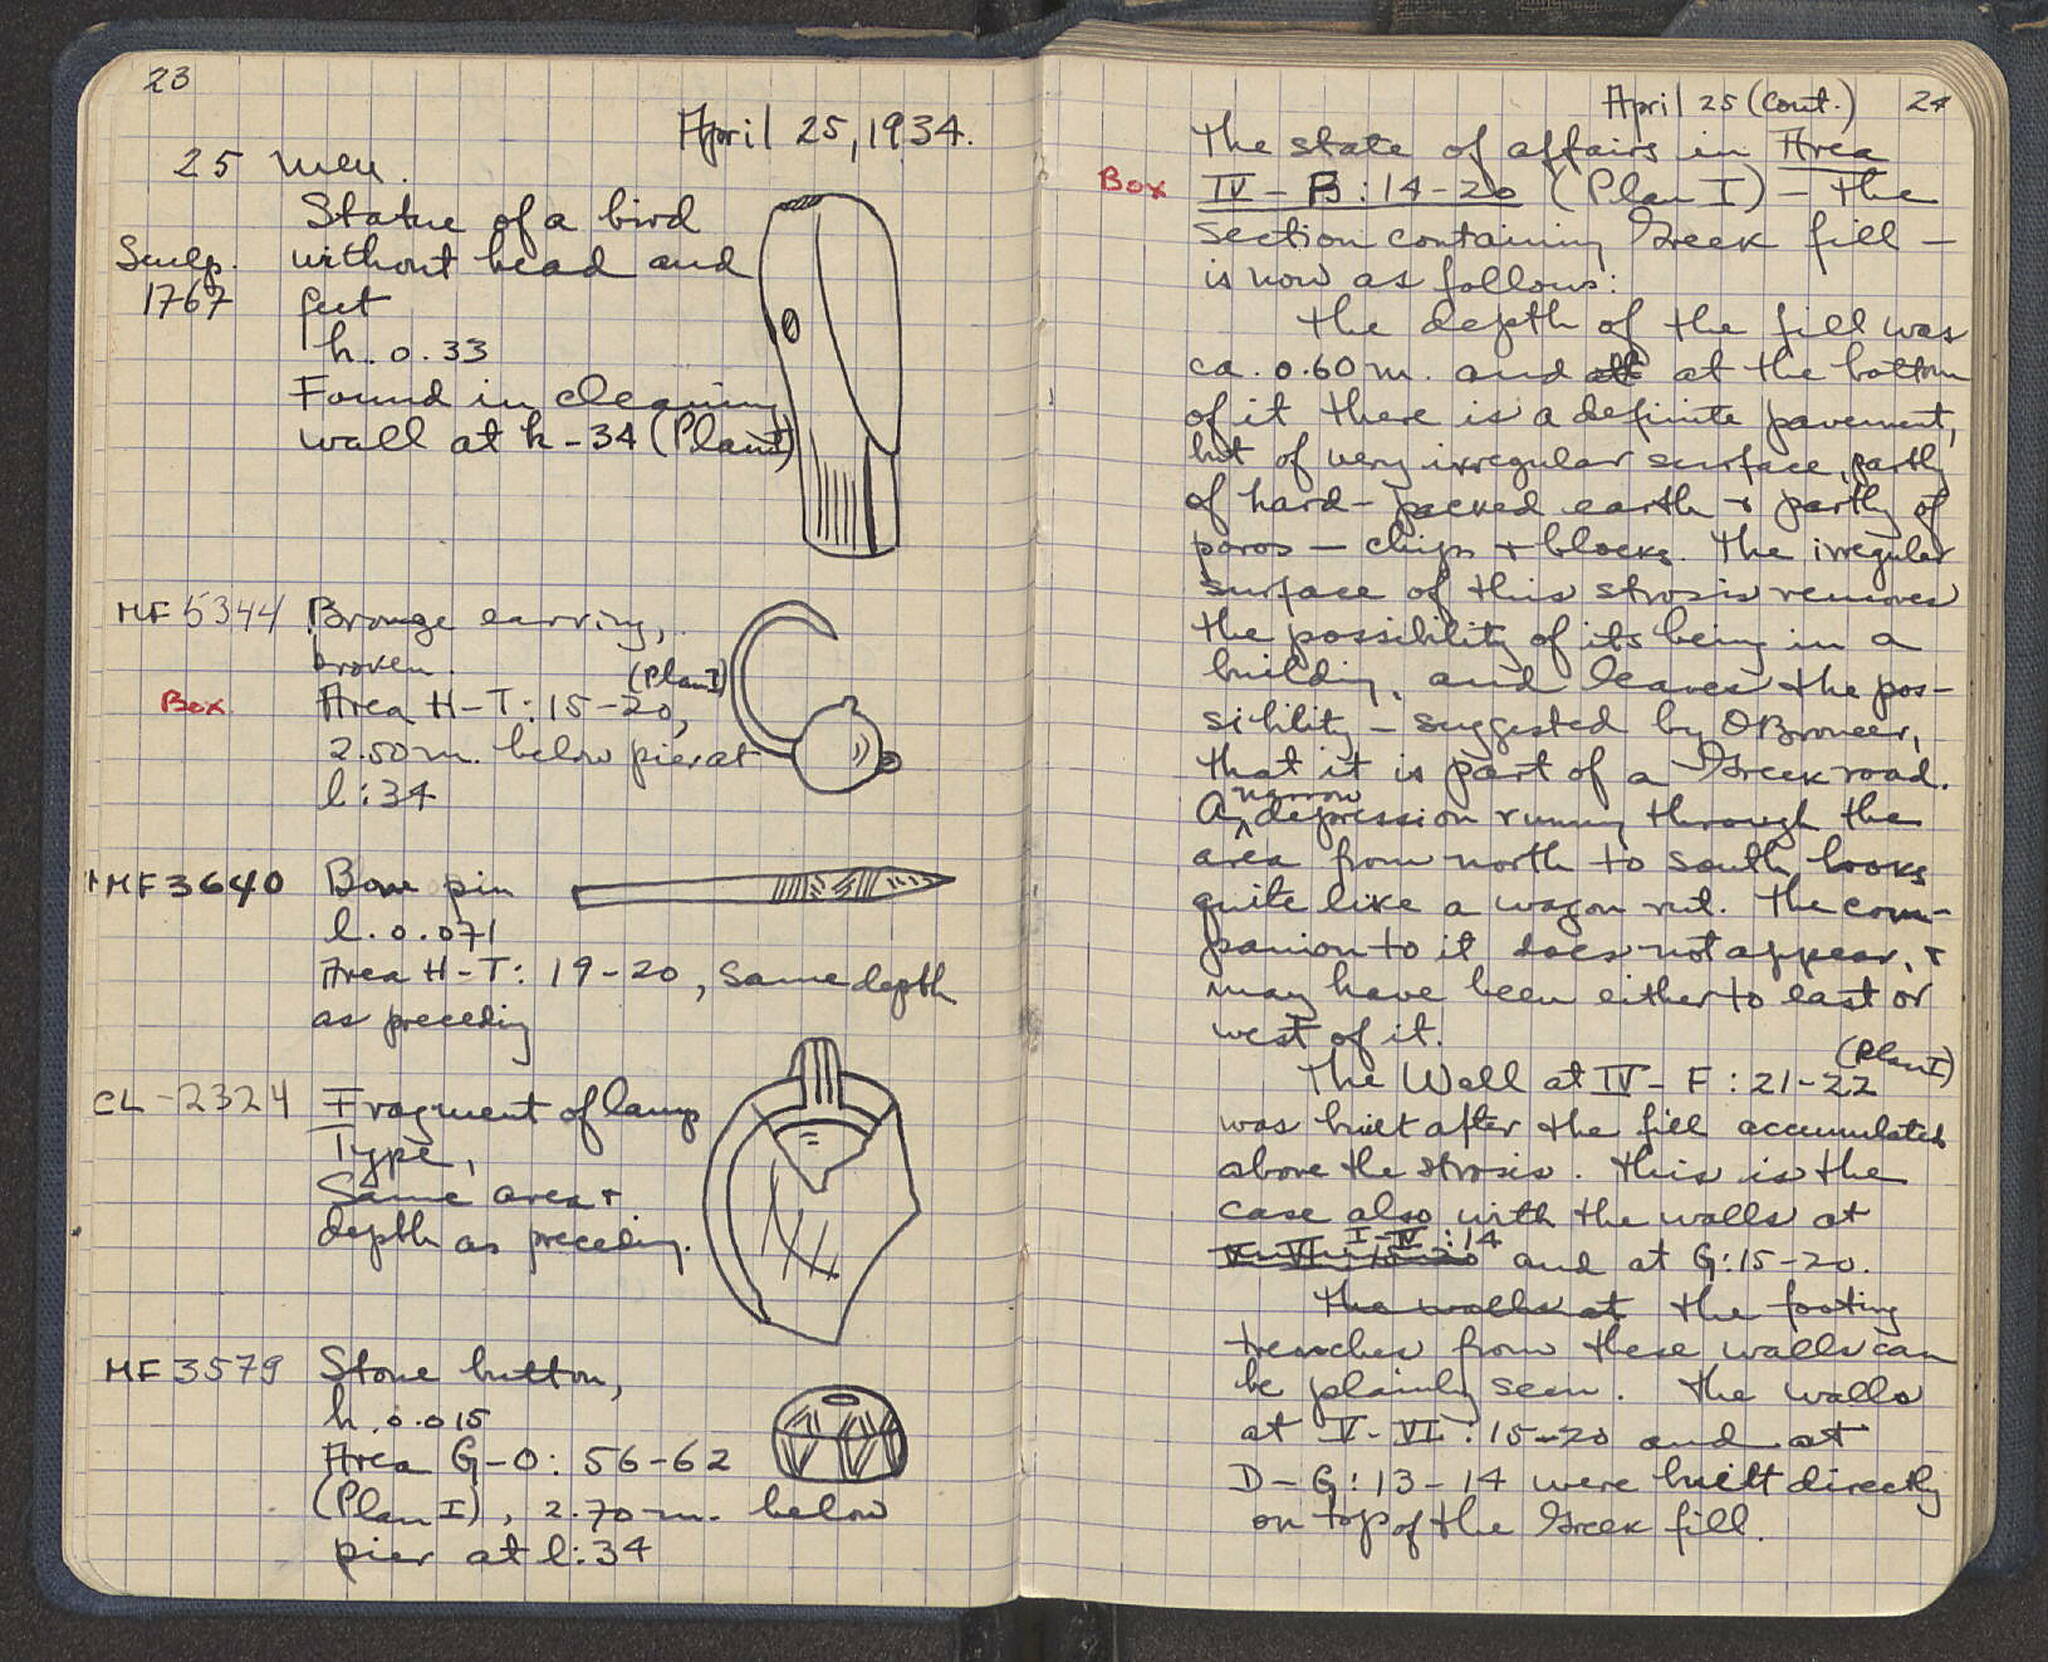 23
April 25, 1934.
25 men.
Statue of a bird
Sculp. without head and
1767 feet
h. 0.33
Found in cleaning
wall at k-34 (Plan I)
MF 5344 Bronze earring,
broken.
(Plan I)
Box Area H-T: 15-20,
2.50 m. below pier at
l:34
MF 3640 Bone pin
l. 0.071
Area H-T: 19-20, same depth
as preceding
CL-2324 Fragment of lamp
Type,
Same area +
depth as preceding.
MF 3579 Stone button,
h. 0.015
Area G-O: 56-62
(Plan I), 2.70 m. below
pier at l:34
April 25 (Cont.) 24
The state of affairs in Area
Box IV - B: 14-20 (Plan I) - the
section containing Greek fill -
is now as follows:
The depth of the fill was
ca. 0.60 m. and at the bottom
of it there is a definite pavement,
but of very irregular surface, partly
of hard-packed earth + partly of
poros - chips + blocks. The irregular
surface of this strosis removes
the possibility of its being in a
building, and leaves the pos-
sibility - suggested by OBroneer,
that it is part of a Greek road.
narrow
A depression running through the
area from north to south looks
quite like a wagon rut. The com-
panion to it does not appear, +
may have been either to east or
west of it.
(Plan I)
The Wall at IV - F: 21-22
was built after the fill accumulated
above the strosis. This is the
case also with the walls at
I-IV:14
V-VI: 15-20 and at G:15-20.
The walls at The footing
trenches from these walls can
be plainly seen. The walls
at V-VI: 15-20 and at
D-G: 13-14 were built directly
on top of the Greek fill.